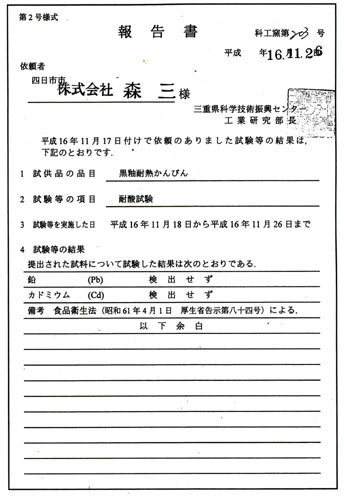 第2号様式
報告書
科工窯第 号
平成 年16.11.26
依頼者
四日市市
株式会社 森三 様
三重県科学技術振興センター
工業研究部長
平成16年11月17日付けで依頼のありました試験等の結果は、
下記のとおりです。
1 試供品の品目 黒釉耐熱かんびん
2 試験等の項目 耐酸試験
3 試験等を実施した日 平成16年11月18日から平成16年11月26日まで
4 試験等の結果
提出された試料について試験した結果は次のとおりである.
鉛 (Pb) 検出せず
カドミウム (Cd) 検出せず
備考 食品衛生法(昭和61年4月1日 厚生省告示第八十四号)による.
以下余白